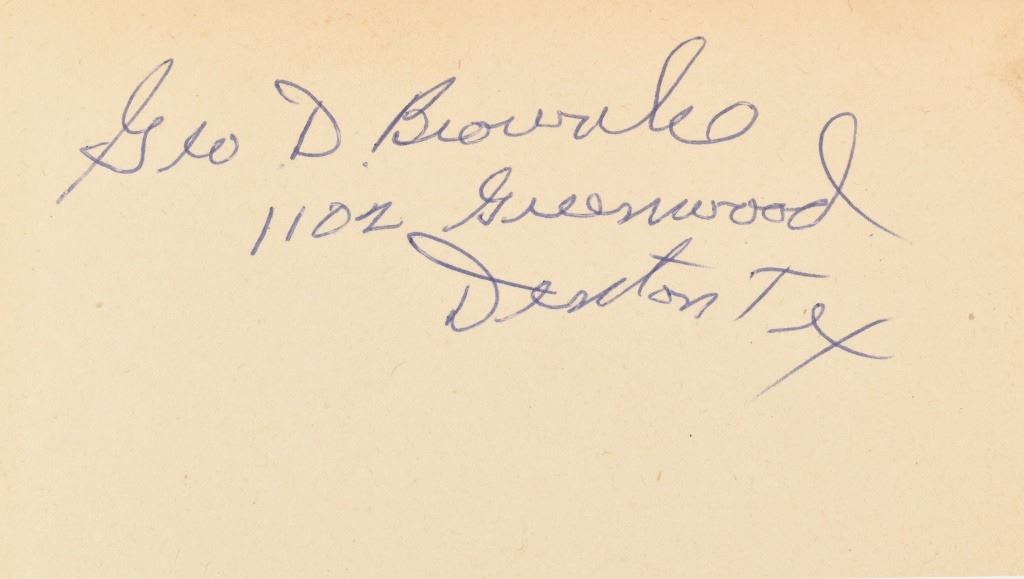 Geo D. Brownlee
1102 Greenwood
Denton Tex